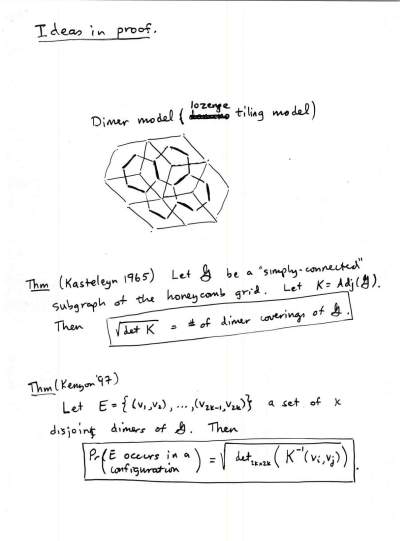 Ideas in proof.
Dimer model (lozenge tiling model)
Thm (Kasteleyn 1965) Let 𝒢 be a "simply-connected"
subgraph of the honeycomb grid. Let K = Adj(𝒢).
Then √det K = # of dimer coverings of 𝒢.
Thm (Kenyon '97)
Let E = {(v₁,v₂), ..., (v₂ₖ₋₁,v₂ₖ)} a set of k
disjoint dimers of 𝒢. Then
Pr(E occurs in a configuration) = √det₂ₖₓ₂ₖ(K⁻¹(vᵢ,vⱼ)).